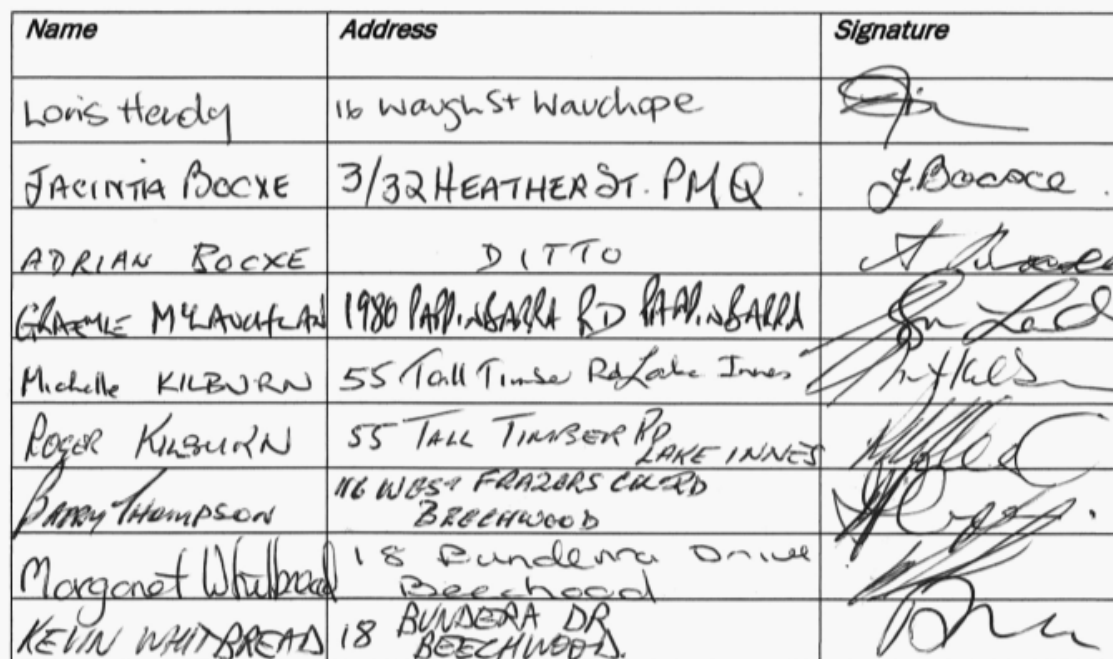 Name Address Signature
Loris Hendy 16 Waugh St Wauchope
JACINTIA BOCXE 3/32 HEATHER ST. PMQ. J. Bocxe.
ADRIAN BOCXE DITTO
GRAEME MCLAUCHLAN 1980 PAPPINBARRA RD PAPPINBARRA
Michelle KILBURN 55 Tall Timber Rd Lake Innes
ROGER KILBURN 55 TALL TIMBER RD
LAKE INNES
BARRY THOMPSON 116 WEST FRAZERS CK RD
BEECHWOOD
Margaret Whitbread 18 Bunderra Drive
Beechood
KEVIN WHITBREAD 18 BUNDERA DR
BEECHWOOD.